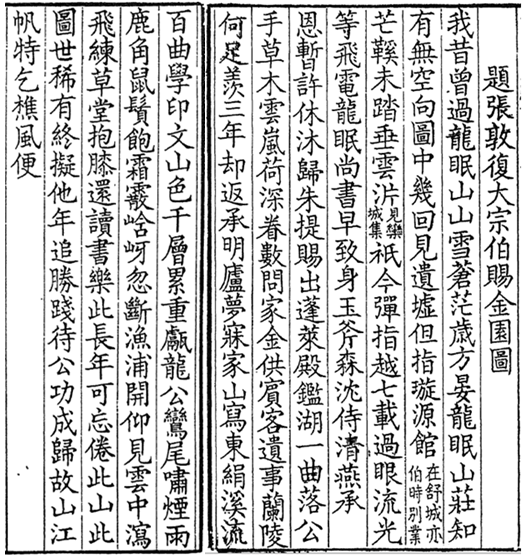 題張敦復大宗伯賜金園圖
我昔曾過龍眠山山雪蒼茫歲方晏龍眠山莊知
有無空向圖中幾回見遺墟但指璇源館在舒城亦伯時別業
芒鞵未踏垂雲沜見欒城集祇今彈指越七載過眼流光
等飛電龍眠尚書早致身玉斧森沈侍清燕承
恩暫許休沐歸朱提賜出蓬萊殿鑑湖一曲落公
手草木雲嵐荷深眷數問家金供賓客遺事蘭陵
何足羨三年却返承明廬夢寐家山寫東絹溪流
百曲學印文山色千層累重甗龍公鸞尾嘯煙雨
鹿角鼠鬚飽霜霰谽谺忽斷漁浦開仰見雲中瀉
飛練草堂抱膝還讀書樂此長年可忘倦此山此
圖世稀有終擬他年追勝踐待公功成歸故山江
帆特乞樵風便